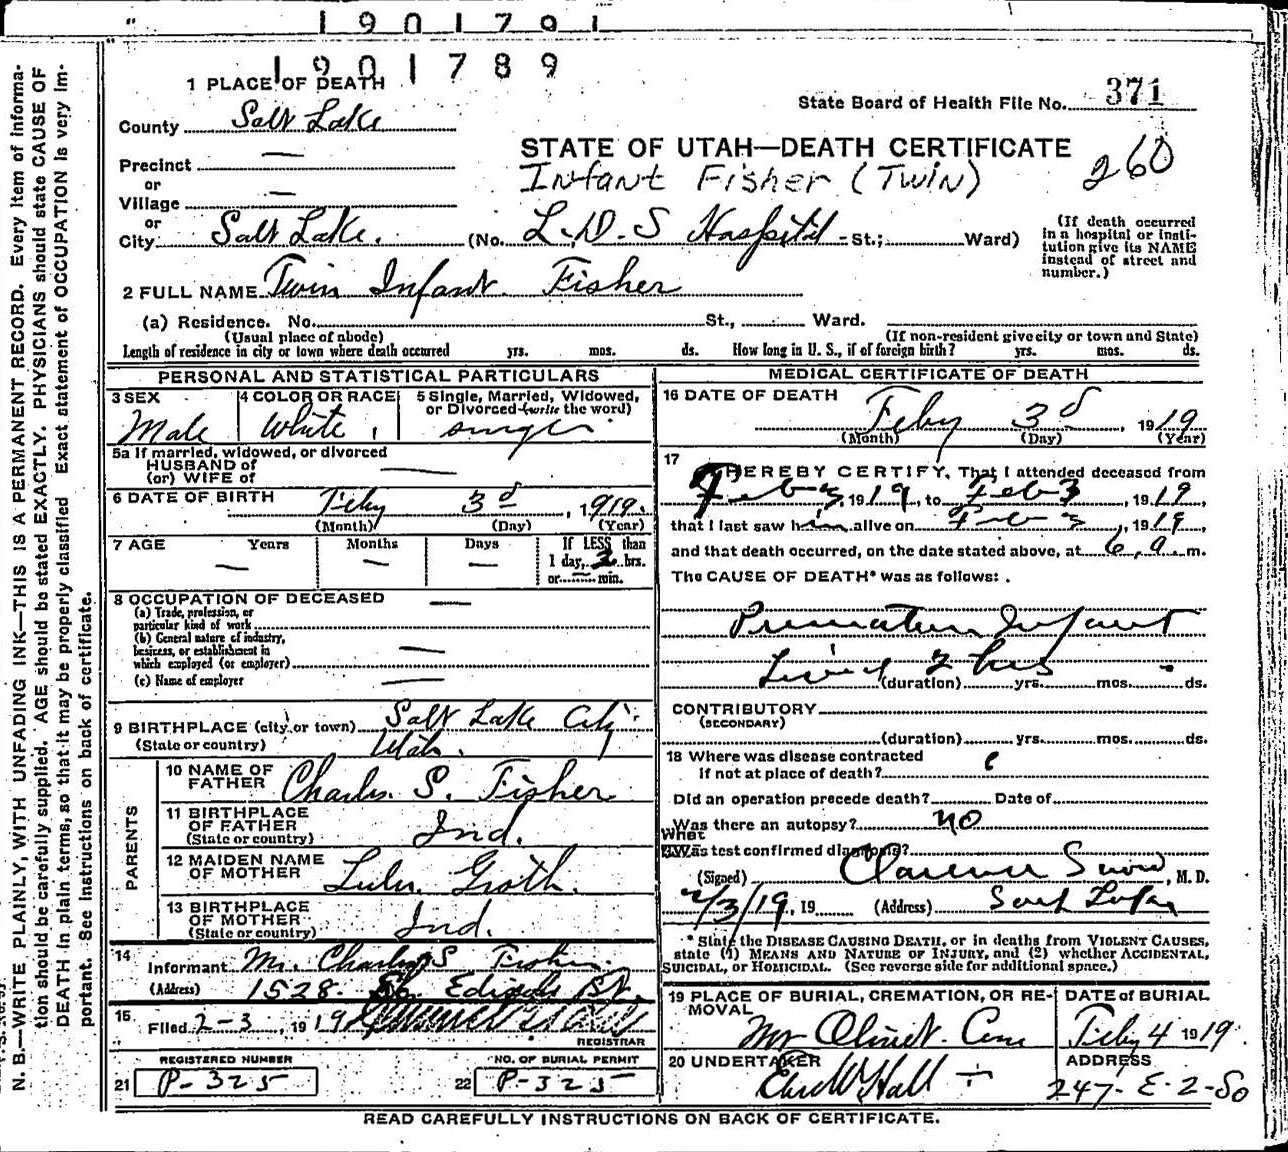 1901791
1901789
1 PLACE OF DEATH
State Board of Health File No. 371
County Salt Lake
STATE OF UTAH—DEATH CERTIFICATE
260
Precinct —
Infant Fisher (Twin)
or
Village —
or
City Salt Lake. (No. L.D.S Hospital St.; Ward)
(If death occurred in a hospital or institution give its NAME instead of street and number.)
2 FULL NAME Twin Infant Fisher
(a) Residence. No. St., Ward.
(Usual place of abode) (If non-resident give city or town and State)
Length of residence in city or town where death occurred yrs. mos. ds. How long in U. S., if of foreign birth? yrs. mos. ds.
PERSONAL AND STATISTICAL PARTICULARS
3 SEX Male
4 COLOR OR RACE White
5 Single, Married, Widowed, or Divorced (write the word) single
5a If married, widowed, or divorced
HUSBAND of
(or) WIFE of —
6 DATE OF BIRTH Feby 3d, 1919.
(Month) (Day) (Year)
7 AGE Years — Months — Days — If LESS than
1 day, 2 hrs.
or — min.
8 OCCUPATION OF DECEASED —
(a) Trade, profession, or
particular kind of work
(b) General nature of industry,
business, or establishment in —
which employed (or employer)
(c) Name of employer —
9 BIRTHPLACE (city or town) Salt Lake City
(State or country) Utah.
PARENTS
10 NAME OF FATHER Charles S. Fisher
11 BIRTHPLACE OF FATHER (State or country) Ind.
12 MAIDEN NAME OF MOTHER Lulu Groth.
13 BIRTHPLACE OF MOTHER (State or country) Ind.
14 Informant Mr. Charles S Fisher
(Address) 1528 So. Edison St.
15 Filed 2-3, 1919
REGISTRAR
REGISTERED NUMBER
21 P-325
NO. OF BURIAL PERMIT
22 P-325
MEDICAL CERTIFICATE OF DEATH
16 DATE OF DEATH
Feby 3d, 1919
(Month) (Day) (Year)
17 I HEREBY CERTIFY, That I attended deceased from
Feb 3, 1919, to Feb 3, 1919,
that I last saw him alive on Feb 3, 1919,
and that death occurred, on the date stated above, at 6 a. m.
The CAUSE OF DEATH* was as follows:
Premature Infant
Lived 2 hrs
(duration) yrs. mos. ds.
CONTRIBUTORY
(SECONDARY)
(duration) yrs. mos. ds.
18 Where was disease contracted
if not at place of death?
Did an operation precede death? Date of
Was there an autopsy? no
What test confirmed diagnosis?
(Signed) Clarence Snow, M. D.
2/3/19, 19 (Address) Salt Lake
* State the DISEASE CAUSING DEATH, or in deaths from VIOLENT CAUSES,
state (1) MEANS AND NATURE OF INJURY, and (2) whether ACCIDENTAL,
SUICIDAL, or HOMICIDAL. (See reverse side for additional space.)
19 PLACE OF BURIAL, CREMATION, OR REMOVAL
Mt Olivet Cem
DATE of BURIAL
Feby 4 1919.
20 UNDERTAKER
Earl W Hall
ADDRESS
247-E-2-So
READ CAREFULLY INSTRUCTIONS ON BACK OF CERTIFICATE.
N. B.—WRITE PLAINLY, WITH UNFADING INK—THIS IS A PERMANENT RECORD. Every item of information should be carefully supplied. AGE should be stated EXACTLY. PHYSICIANS should state CAUSE OF DEATH in plain terms, so that it may be properly classified. Exact statement of OCCUPATION is very important. See instructions on back of certificate.